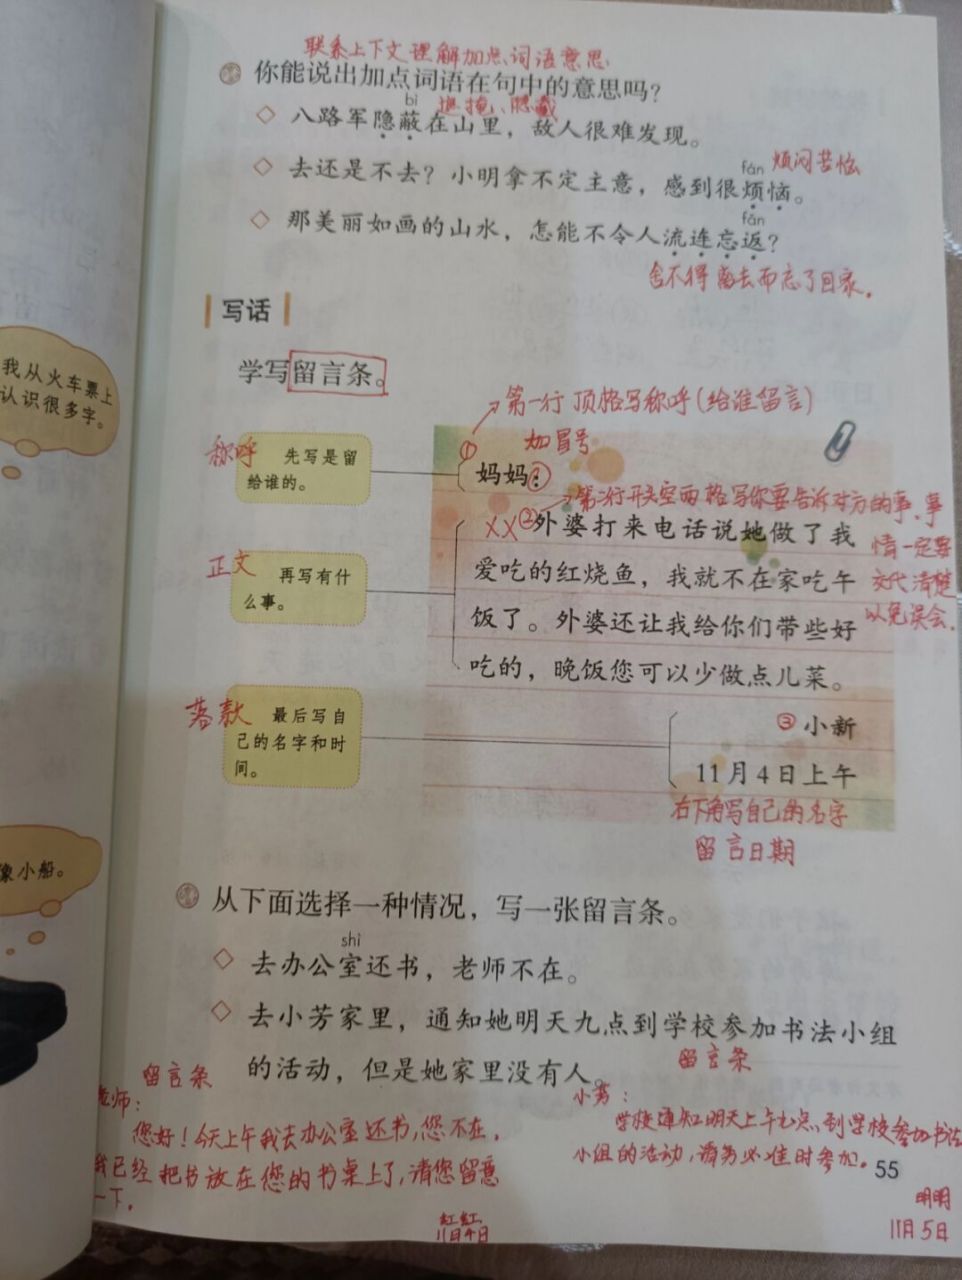 联系上下文理解加点词语意思
你能说出加点词语在句中的意思吗？
bì 遮掩、隐藏
八路军隐蔽在山里，敌人很难发现。
fán 烦闷苦恼
去还是不去？小明拿不定主意，感到很烦恼。
fǎn
那美丽如画的山水，怎能不令人流连忘返？
舍不得离去而忘了回家。
写话
我从火车票上
认识很多字。
学写留言条。
①第一行顶格写称呼(给谁留言)
加冒号
称呼 先写是留
给谁的。
妈妈：
第二行开头空两格写你要告诉对方的事、事
情一定要
交代清楚
以免误会.
正文 再写有什
么事。
XX②外婆打来电话说她做了我
爱吃的红烧鱼，我就不在家吃午
饭了。外婆还让我给你们带些好
吃的，晚饭您可以少做点儿菜。
落款 最后写自
己的名字和时
间。
③小新
11月4日上午
右下角写自己的名字
留言日期
象小船。
从下面选择一种情况，写一张留言条。
shì
去办公室还书，老师不在。
去小芳家里，通知她明天九点到学校参加书法小组
的活动，但是她家里没有人。
留言条
老师：
您好！今天上午我去办公室还书，您不在，
我已经把书放在您的书桌上了，请您留意
一下。
红红
11月4日
留言条
小芳：
学校通知明天上午九点到学校参加书法
小组的活动，请务必准时参加。
明明
11月5日
55